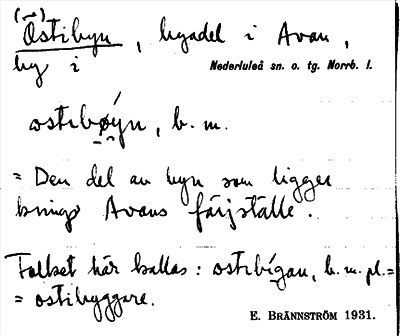 (-)
Östibyn, bydel i Avan,
by i Nederluleå sn. o. tg. Norrb. l.
ostɩbøýn, b. m.
= Den del av byn som ligger
kring Avans färjställe.
Folket här kallas: ostɩbígan, b. m. pl. =
= ostibyggare.
E. BRÄNNSTRÖM 1931.